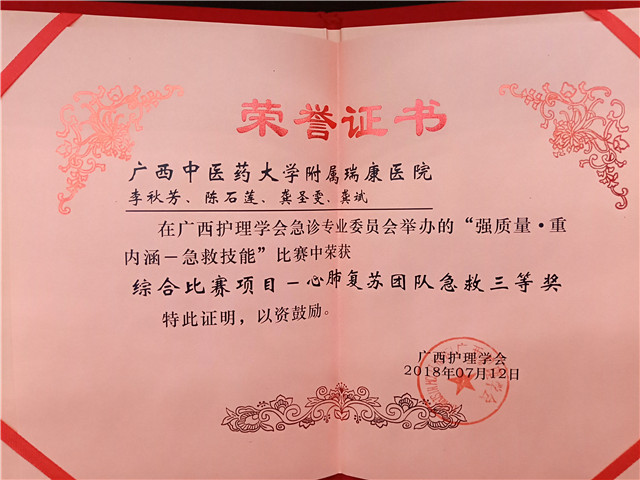 荣誉证书
广西中医药大学附属瑞康医院
李秋芳、陈石莲、龚圣雯、龚斌
在广西护理学会急诊专业委员会举办的“强质量·重
内涵－急救技能”比赛中荣获
综合比赛项目－心肺复苏团队急救三等奖
特此证明，以资鼓励。
广西护理学会
2018年07月12日